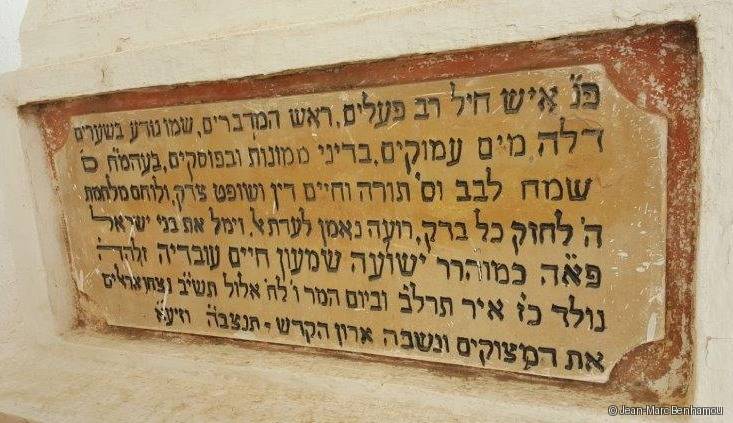 פ״נ איש חיל רב פעלים, ראש המדברים, שמו נודע בשערים
דלה מים עמוקים, בדיני ממונות ובפוסקים, בעהמ״ח ס׳
שמח לבב וס׳ תורה וחיים דין ושופט צדק, ולוחם מלחמת
ה׳ לחזק כל בדק, רועה נאמן לעדת צ, וימל את בני ישראל
פאה כמוהרר ישועה שמעון חיים עובדיה זלהה
נולד כ״ז אייר תרל״ב וביום המר ו׳ לח׳ אלול תשי״ב נצחו אראלים
את המצוקים ונשבה ארון הקדש - תנצבה וזיעא
© Jean-Marc Benhamou